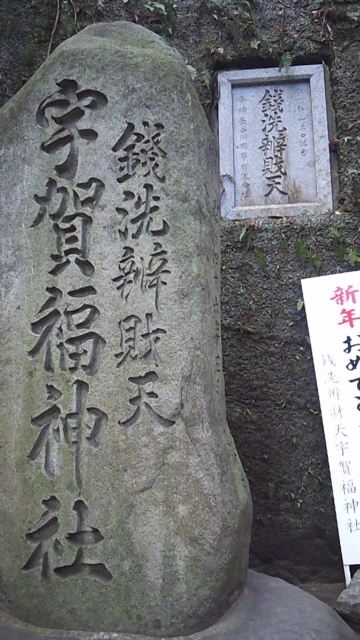 銭洗辨財天
宇賀福神社
銭洗辨財天
新年
おめでと
銭洗辨財天宇賀福神社